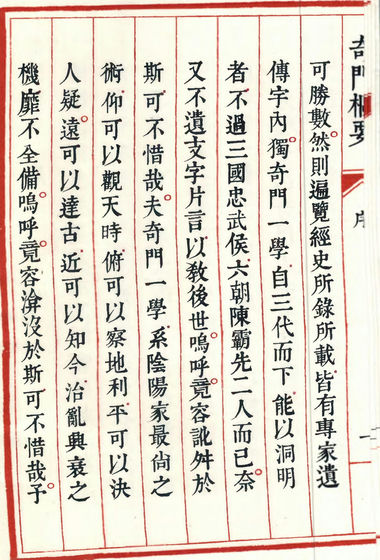 奇門樞要
序
一
可勝數。然則遍覽經史所錄所載皆有專家遺
傳字內。獨奇門一學自三代而下能以洞明
者不過三國忠武侯六朝陳霸先二人而已。奈
又不遺支字片言以敎後世。嗚呼。竟容訛舛於
斯可不惜哉。夫奇門一學系陰陽家最尙之
術仰可以觀天時俯可以察地利平可以決
人疑。遠可以達古近可以知今治亂興衰之
機靡不全備。嗚呼。竟容淪沒於斯可不惜哉。予